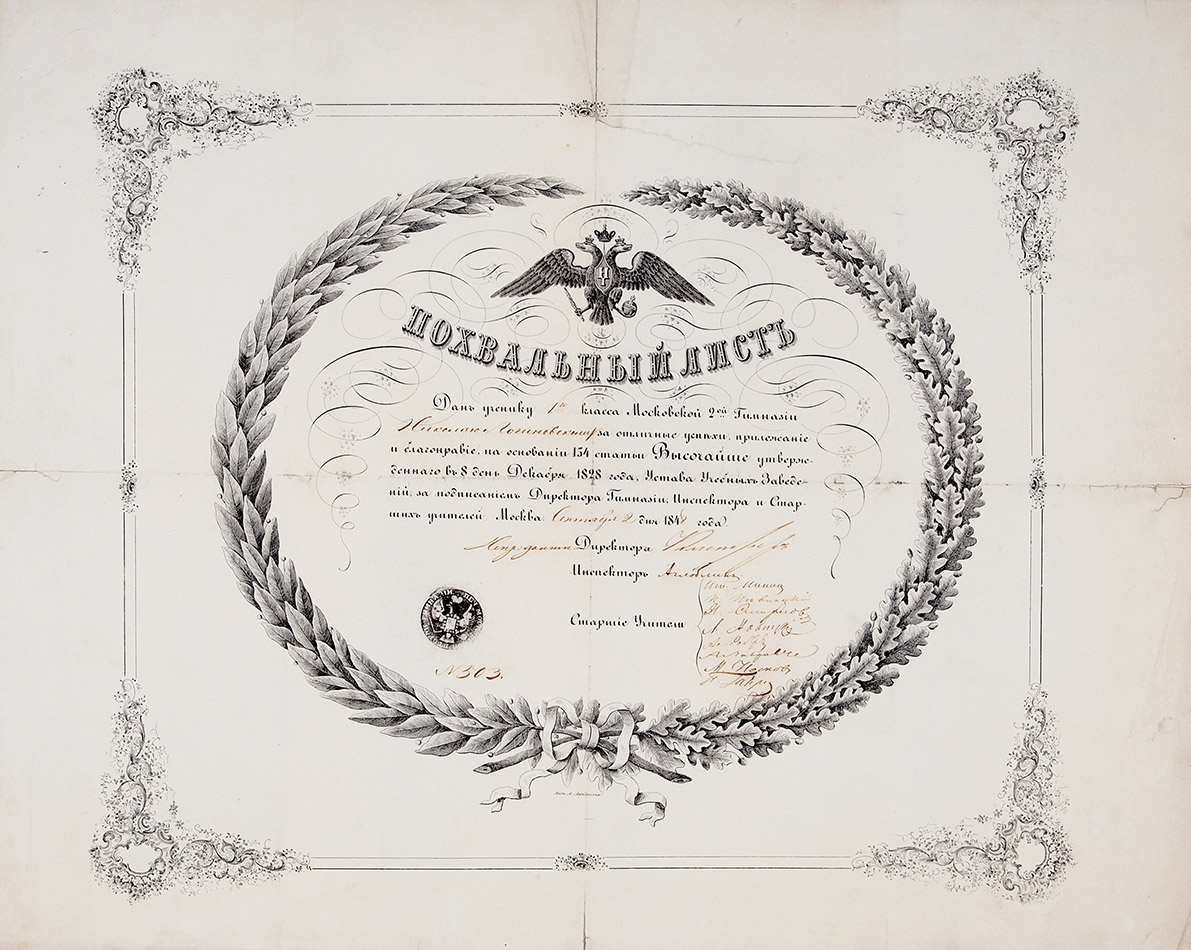 ПОХВАЛЬНЫЙ ЛИСТЪ
Данъ ученику 1го класса Московской 2ой Гимназіи
Николаю Логиновскому за отличные успѣхи, прилежаніе
и благонравіе, на основаніи 134 статьи Высочайше утверж-
деннаго въ 8 день Декабря 1828 года, Устава Учебныхъ Заведе-
ній, за подписаніемъ Директора Гимназіи, Инспектора и Стар-
шихъ учителей. Москва. Сентября 2 дня 1848 года
Директора
Инспекторъ
Старшіе Учители
М. Поповъ
N 503.